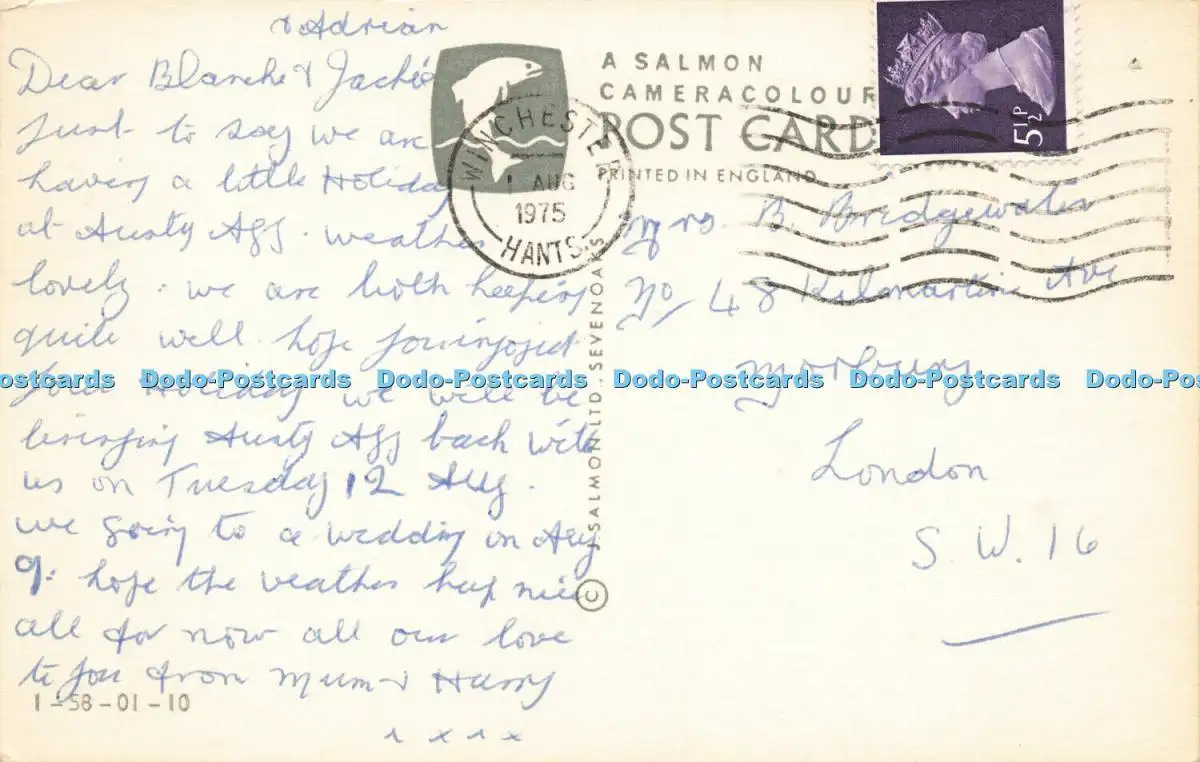 & Adrian
Dear Blanche & Jackie
Just to say we are
having a little Holiday
at Aunty Agg. weather
lovely. we are both keeping
quite well. hope you injoyed
your Holiday we will be
bringing Aunty Agg back with
us on Tuesday 12 Aug.
we going to a wedding on Aug
9. hope the weather keep nice
all for now all our love
to you from Mum & Harry
x x x x
1-58-01-10
A SALMON
CAMERACOLOUR
POST CARD
PRINTED IN ENGLAND
WINCHESTER
1 AUG
1975
HANTS.
5½P
© J SALMON LTD., SEVENOAKS
Mrs. B. Bridgewater
No/ 48 Kilmartin Ave
London
S.W.16
Dodo-Postcards Dodo-Postcards Dodo-Postcards Dodo-Postcards Dodo-Postcards Dodo-Postcards